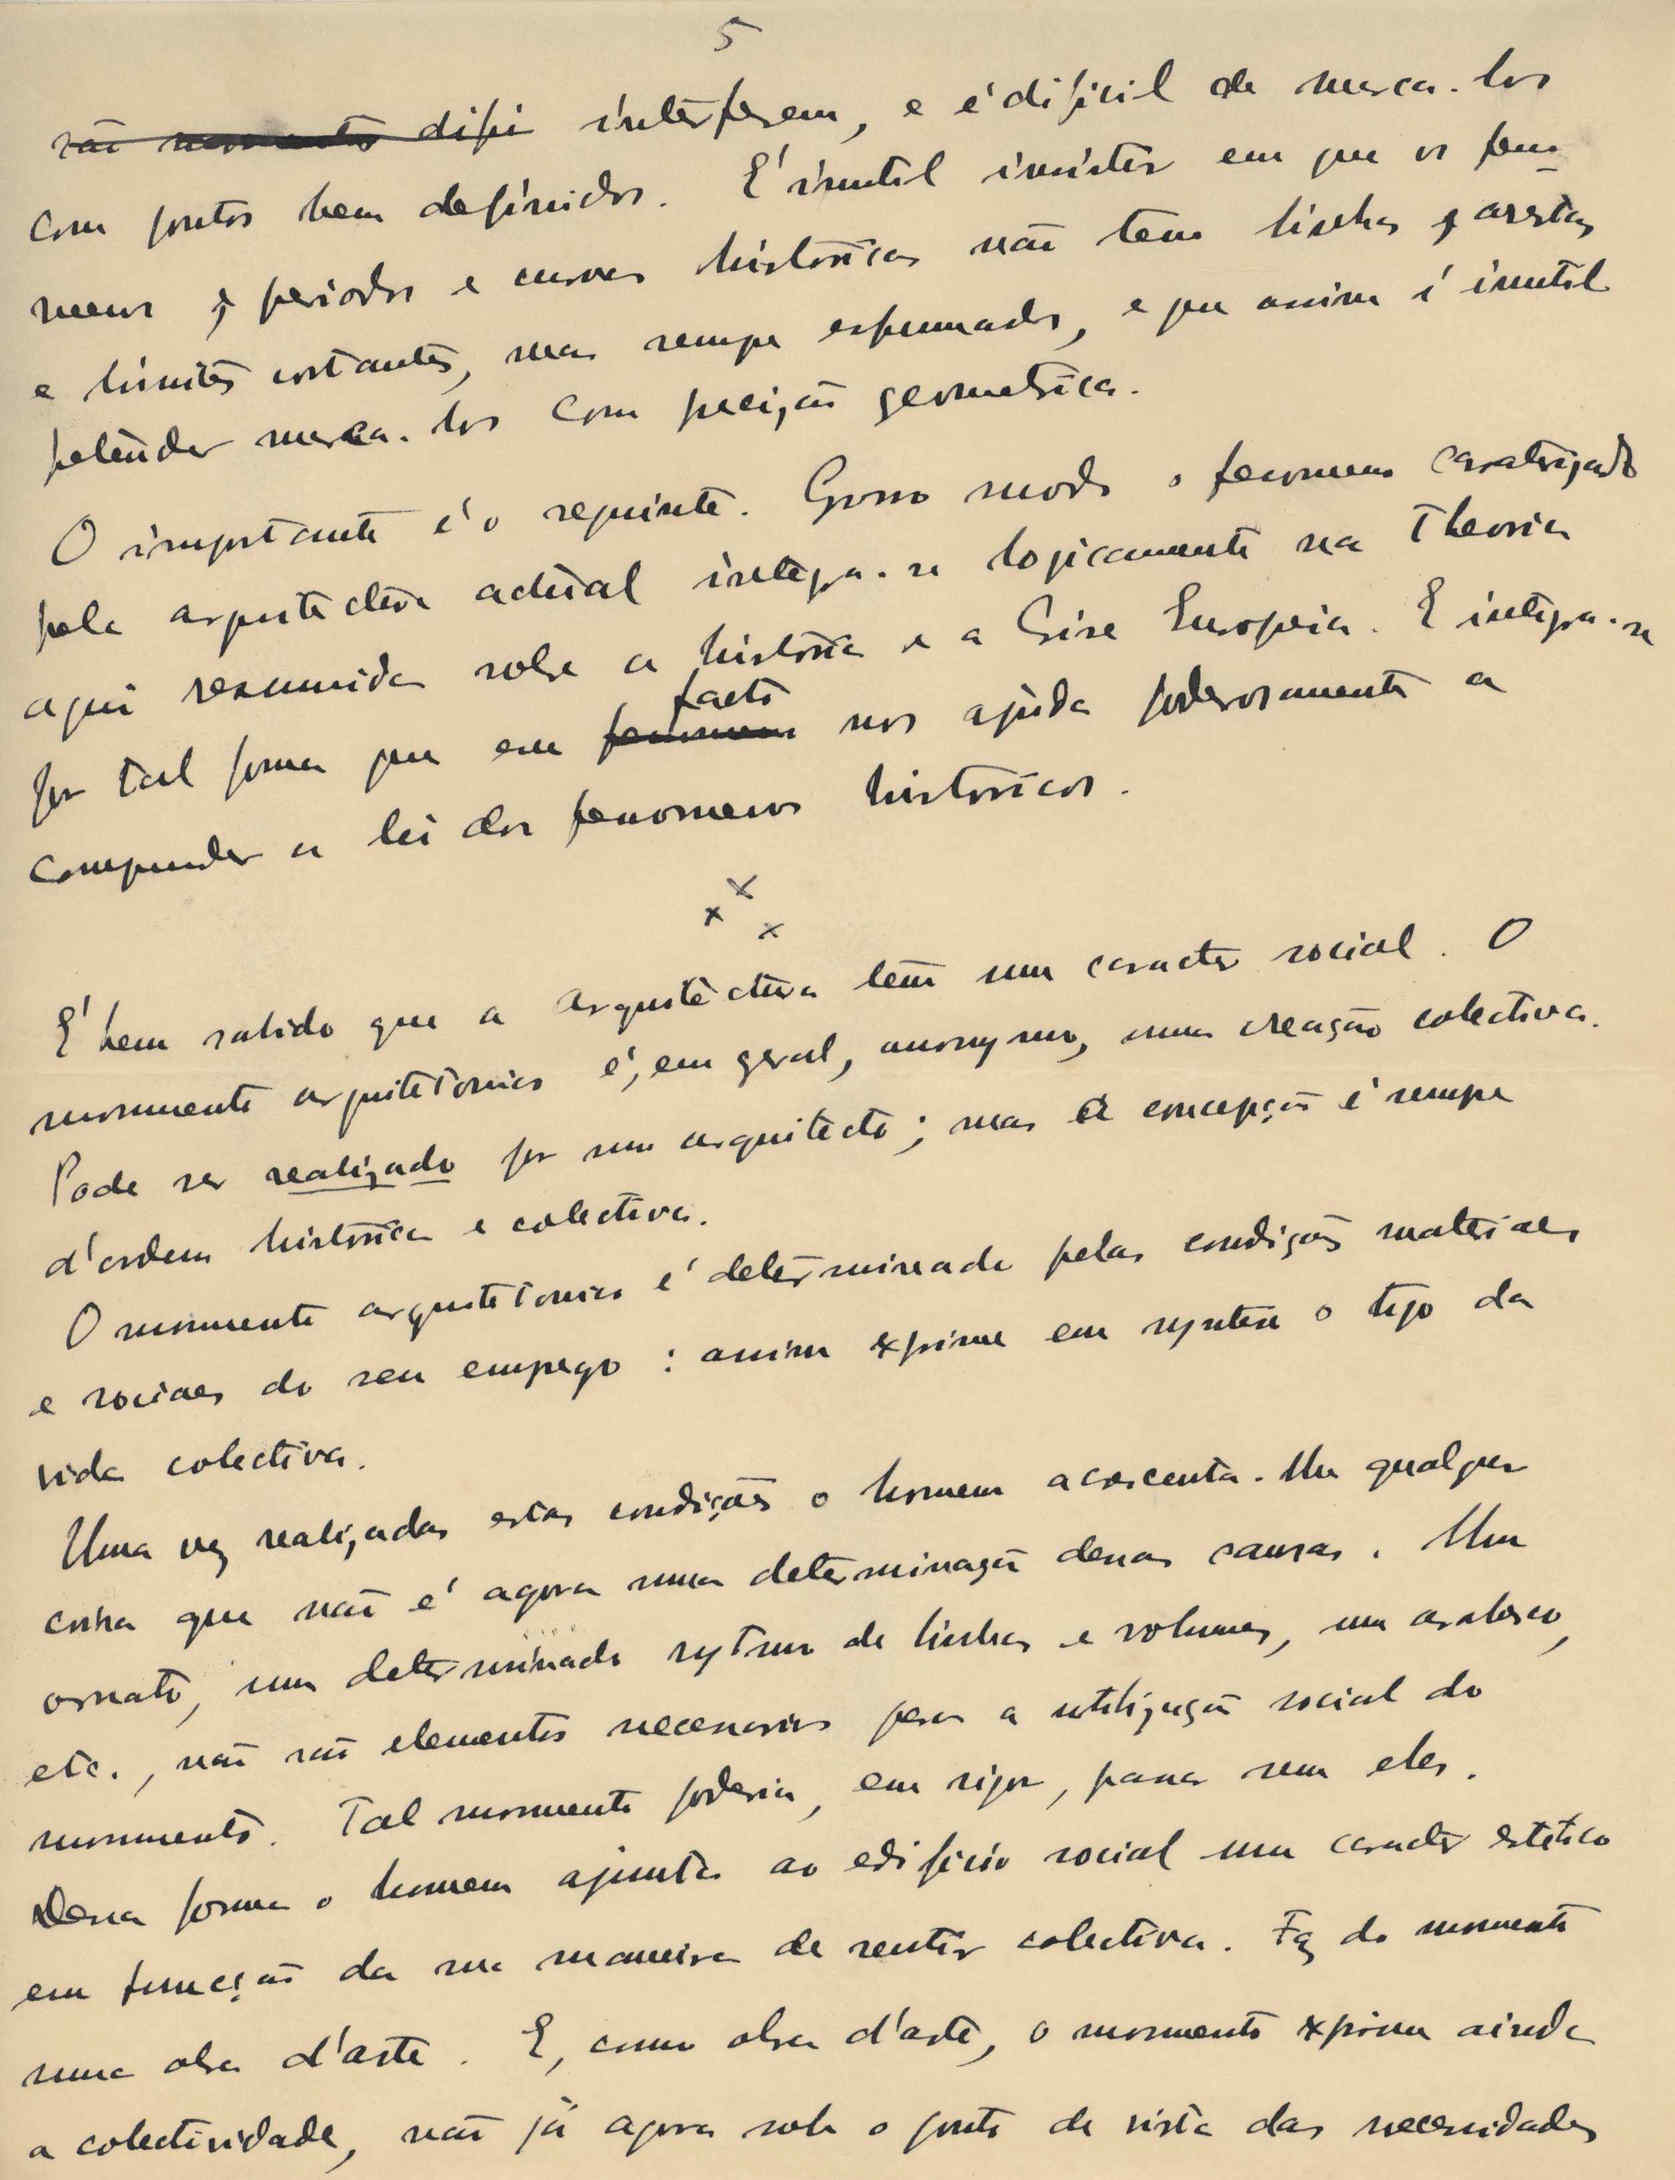 5
são momentos difi interferem, e é dificil de marca-los
com pontos bem definidos. E' inutil insistir em que os feno-
menos, periodos e curvas historicas não tem linhas, arestas
e limites cortantes, mas sempre esfumados, e que assim é inutil
pretender marca-los com precição geometrica.
O importante é o seguinte. Grosso modo o fenomeno caraterizado
pela arquitectura actual integra-se logicamente na Theoria
aqui resumida sobre a historia e a Crise Europeia. E integra-se
por tal forma que em facto
fenomeno nos ajuda poderosamente a
compreender a lei dos fenomenos historicos.
x x x
E' bem sabido que a arquitectura tem um caracter social. O
monumento arquitetonico é, em geral, anonymo, uma creação colectiva.
Pode ser realizado por um arquitecto; mas a concepção é sempre
d'ordem historica e colectiva.
O monumento arquitetonico é determinado pelas condições materiaes
e sociaes do seu emprego: assim exprime em syntese o tipo da
vida colectiva.
Uma vez realizadas estas condições o homem acrescenta-lhe qualquer
coisa que não é agora uma determinação dessas causas. Um
ornato, um determinado rytmo de linhas e volumes, um arabesco,
etc., não são elementos necessarios para a utilização social do
monumento. Tal monumento poderia, em rigor, passar sem eles.
Dessa forma o homem ajunta ao edificio social um caracter estetico
em funcção da sua maneira de sentir colectiva. Faz do monumento
uma obra d'arte. E, como obra d'arte, o monumento exprime ainda
a colectividade, não já agora sob o ponto de vista das necessidades